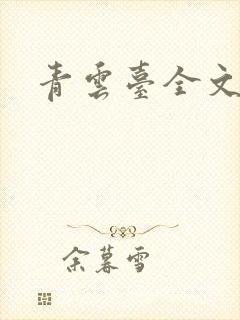 青雲臺全文
余暮雪